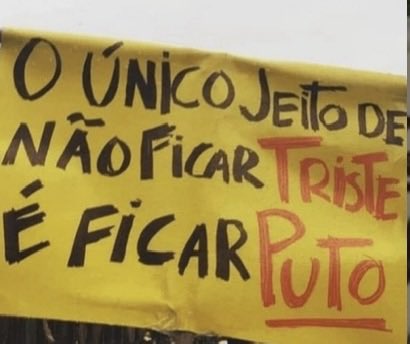 O ÚNICO JEITO DE
NÃO FICAR TRISTE
É FICAR PUTO